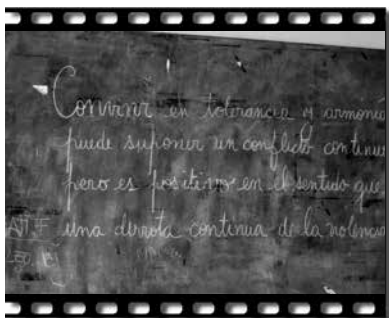 Convivir en tolerancia y armonía
puede suponer un conflicto continuo
pero es positivo en el sentido que
una derrota continua de la violencia